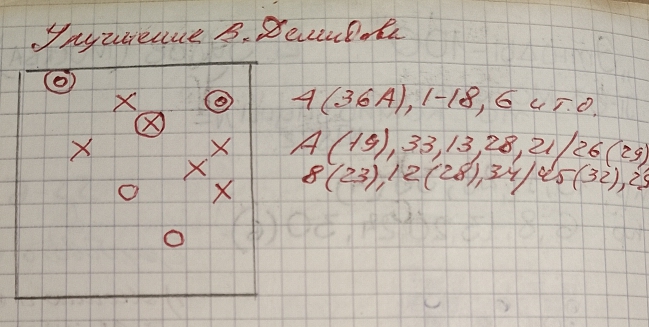 Улучшение В. Демидова
А(36А), 1-18, 6 и т.д.
А(19), 33, 13, 28, 21/26(29)
8(23), 12(28), 34/45(32), 23